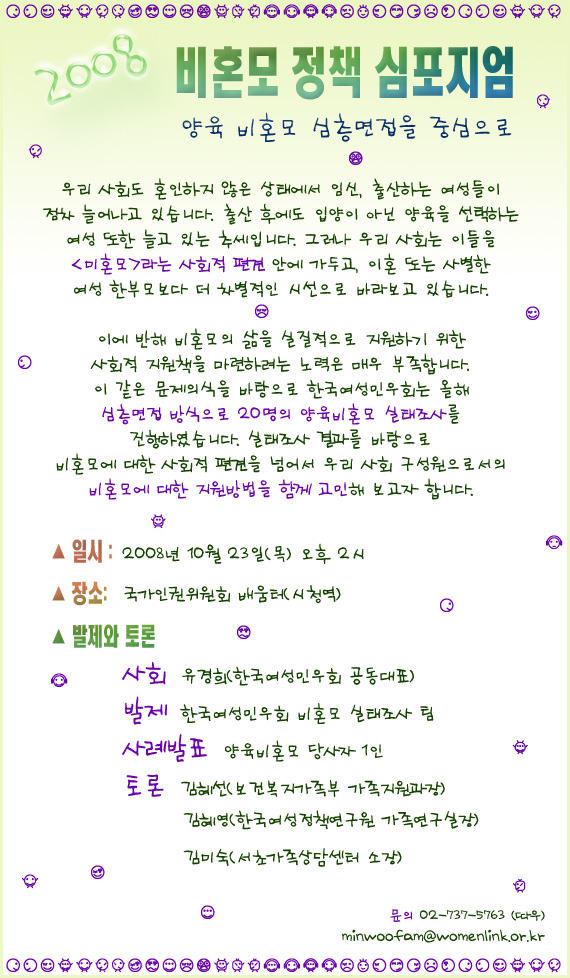 2008 비혼모 정책 심포지엄
양육 비혼모 심층면접을 중심으로
우리 사회도 혼인하지 않은 상태에서 임신, 출산하는 여성들이
점차 늘어나고 있습니다. 출산 후에도 입양이 아닌 양육을 선택하는
여성 또한 늘고 있는 추세입니다. 그러나 우리 사회는 이들을
<미혼모>라는 사회적 편견 안에 가두고, 이혼 또는 사별한
여성 한부모보다 더 차별적인 시선으로 바라보고 있습니다.
이에 반해 비혼모의 삶을 실질적으로 지원하기 위한
사회적 지원책을 마련하려는 노력은 매우 부족합니다.
이 같은 문제의식을 바탕으로 한국여성민우회는 올해
심층면접 방식으로 20명의 양육비혼모 실태조사를
진행하였습니다. 실태조사 결과를 바탕으로
비혼모에 대한 사회적 편견을 넘어서 우리 사회 구성원으로서의
비혼모에 대한 지원방법을 함께 고민해 보고자 합니다.
▲ 일시 : 2008년 10월 23일(목) 오후 2시
▲ 장소: 국가인권위원회 배움터(시청역)
▲ 발제와 토론
사회 유경희(한국여성민우회 공동대표)
발제 한국여성민우회 비혼모 실태조사 팀
사례발표 양육비혼모 당사자 1인
토론 김혜선(보건복지가족부 가족지원과장)
김혜영(한국여성정책연구원 가족연구실장)
김미숙(서초가족상담센터 소장)
문의 02-737-5763 (따우)
minwoofam@womenlink.or.kr